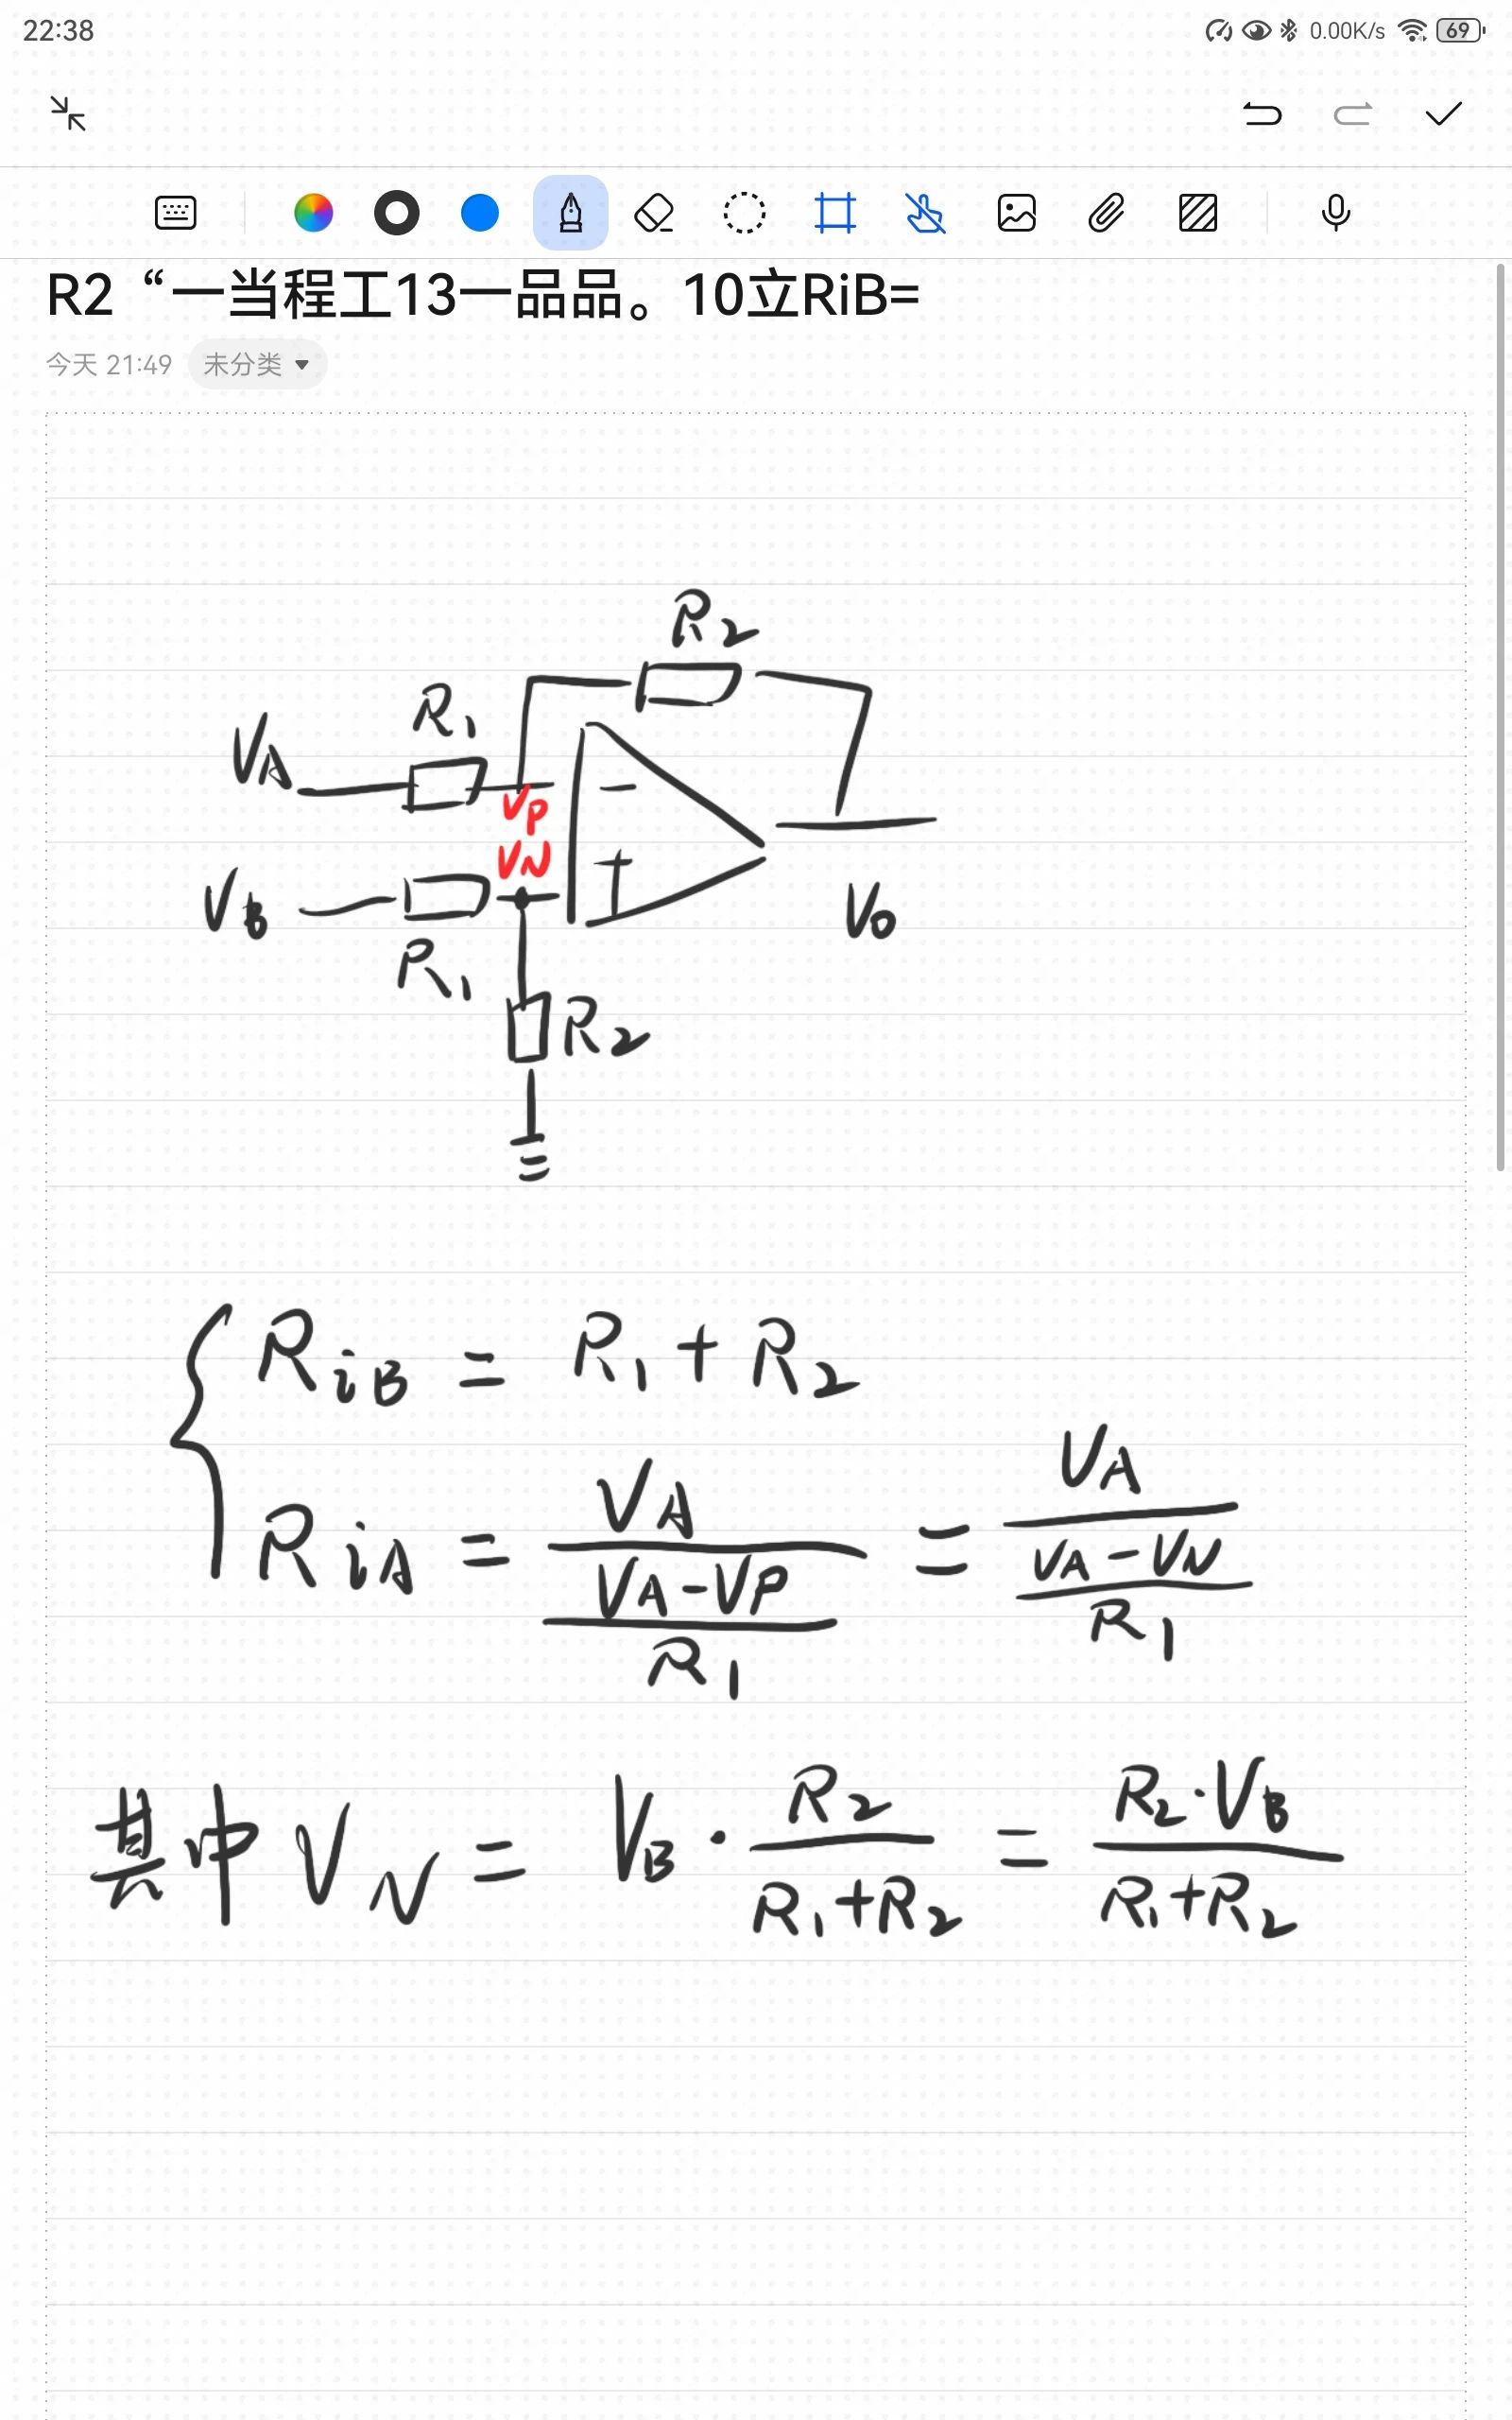 22:38 0.00K/s 69
R2“一当程工13一品品。10立RiB=
今天 21:49 未分类
R2
R1
VA
VP
VN
−
+
VB
R1
Vo
R2
RiB = R1 + R2
RiA = VA / ((VA-VP) / R1) = VA / ((VA-VN) / R1)
其中 VN = VB · R2 / (R1+R2) = R2·VB / (R1+R2)